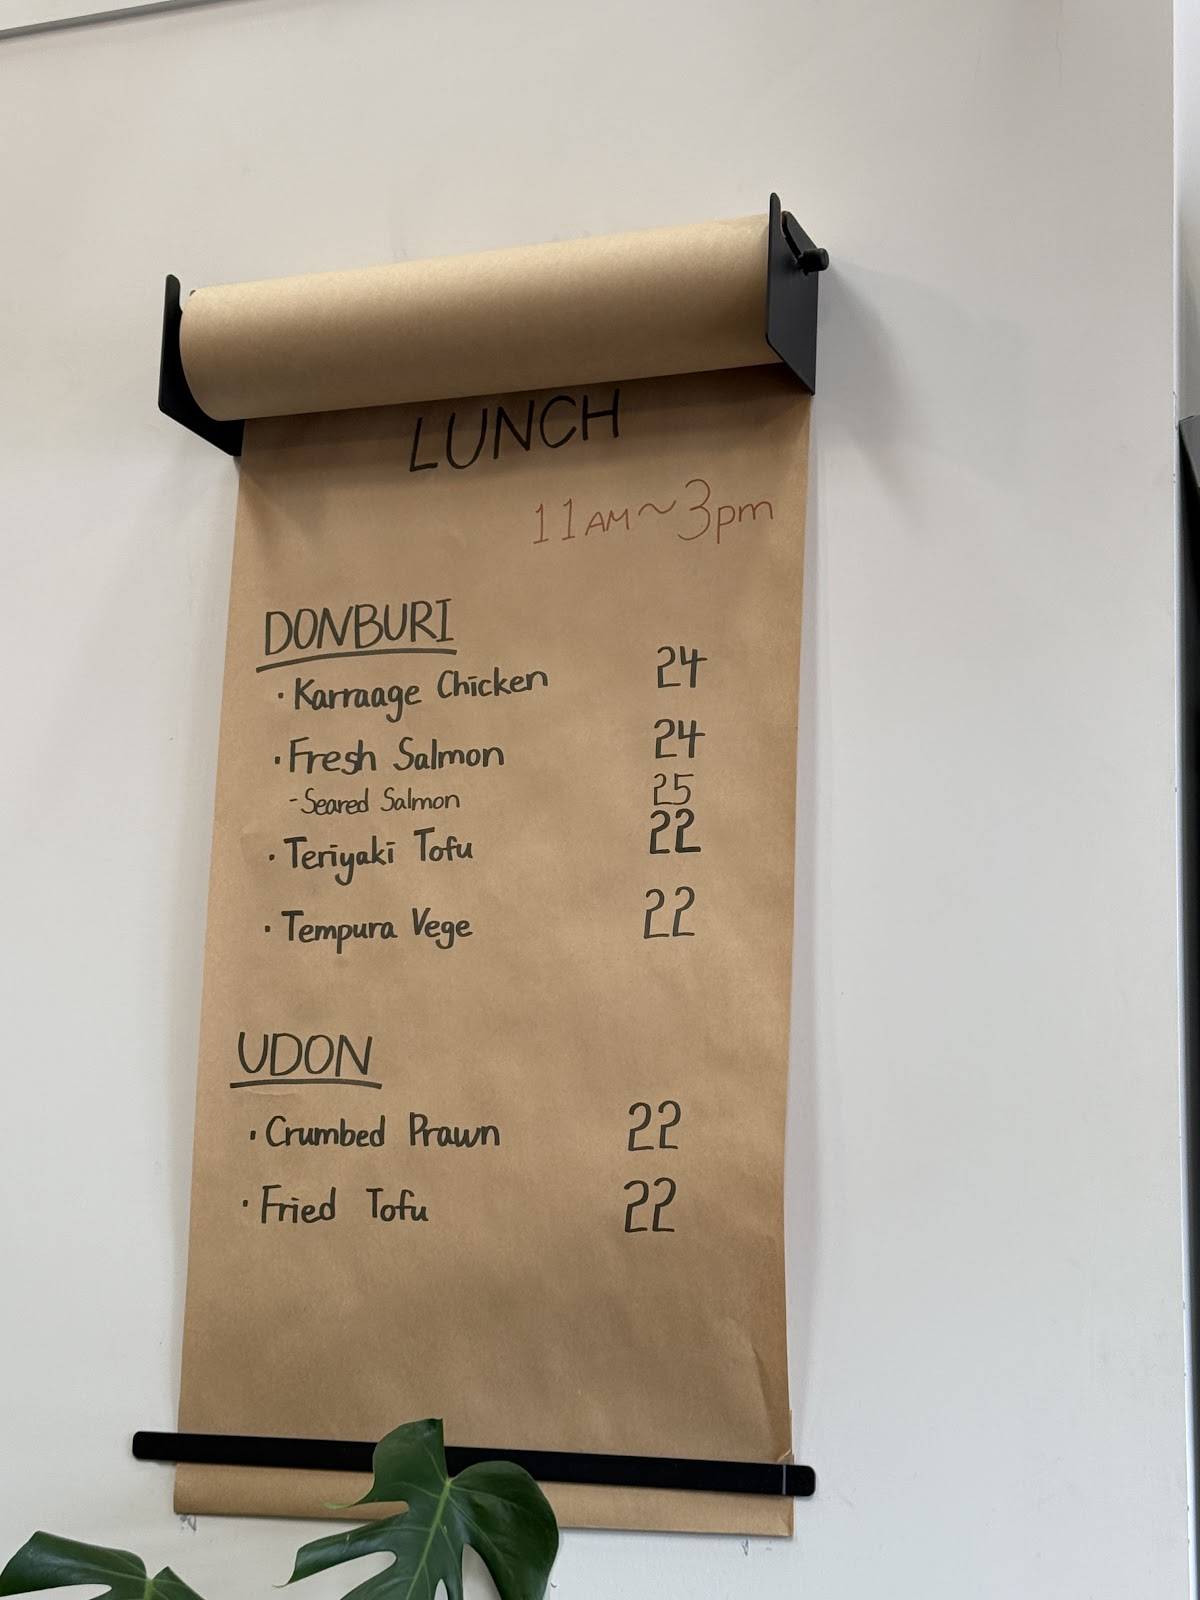 LUNCH
11AM~3pm
DONBURI
· Karraage Chicken 24
· Fresh Salmon 24
- Seared Salmon 25
· Teriyaki Tofu 22
· Tempura Vege 22
UDON
· Crumbed Prawn 22
· Fried Tofu 22